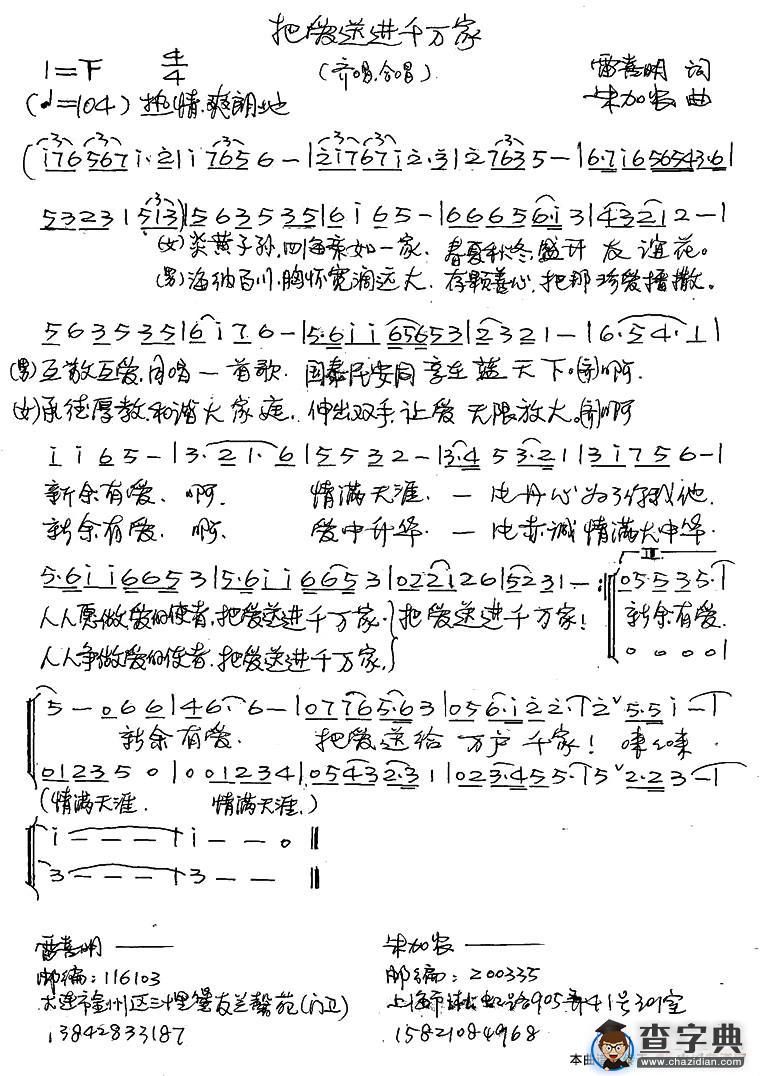 把爱送进千万家
1=F 4/4 (齐唱.合唱) 雷喜明 词
(♩=104) 热情.爽朗地 朱加农 曲
(i76 567 i·2 | i 765 6 - | 2i7 67i 2·3 | 2 763 5 - | 6·7i6 56543·6 |
5323 1 5i3) | 563535 | 6i65 - | 66656·i3 | 43212 - |
(女)炎黄子孙,四海亲如一家. 春夏秋冬,盛开友谊花。
(男)海纳百川,胸怀宽阔远大. 存颗善心,把那珍爱播撒。
563535 | 6i76 - | 5·6ii65653 | 2321 - | 6·54·1 |
(男)互敬互爱,同唱一首歌. 国泰民安同享在蓝天下。(齐)啊.
(女)承德厚教,和谐大家庭. 伸出双手,让爱无限放大。(齐)啊
ii65 - | 3·21·6 | 5532 - | 3·453·21 | 3i756 - |
新余有爱. 啊. 情满天涯. 一片丹心为了你我他.
新余有爱. 啊. 爱中升华. 一片赤诚情满大中华.
5·6ii6653 | 5·6ii6653 | 022126 | 5231 - :‖ 05535· |
人人愿做爱的使者,把爱送进千万家.把爱送进千万家! 新余有爱.
人人争做爱的使者,把爱送进千万家. 0 0 0 0 |
5 - 066 | 46·6 - | 07765·63 | 056·i22· | 2 5·5i - |
新余有爱. 把爱送给万户千家! 嗦嗦.
01235 0 | 001234 | 05432·31 | 023·455· | 5 2·23 - |
(情满天涯. 情满天涯.)
i - - - | i - - 0 ‖
3 - - - | 3 - - - ‖
雷喜明 —— 朱加农 ——
邮编:116103 邮编:200335
大连市金州区三十里堡友兰馨苑(门卫) 上海市虹路905弄41号301室
13842833187 15821084968
本曲
查字典
www.chazidian.com